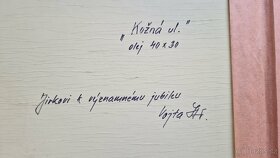 „Kožná ul."
olej 40 x 30
Jirkovi k významnému jubileu
Vojta